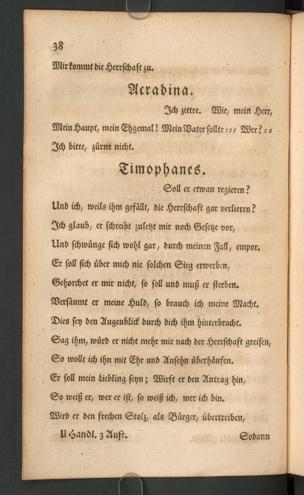 38
Mir kommt die Herrschaft zu.
Acrabina.
Ich zittre. Wie, mein Herr,
Mein Haupt, mein Ehgemal! Mein Vater sollte ::: Wer? ::
Ich bitte, zürne nicht.
Timophanes.
Soll er etwan regieren?
Und ich, weils ihm gefällt, die Herrschaft gar verlieren?
Ich glaub, er schreibt zuletzt mir noch Gesetze vor,
Und schwünge sich wohl gar, durch meinen Fall, empor.
Er soll sich über mich nie solchen Sieg erwerben,
Gehorchet er mir nicht, so soll und muß er sterben.
Versäumt er meine Huld, so brauch ich meine Macht.
Dies sey den Augenblick durch dich ihm hinterbracht.
Sag ihm, würd er nicht mehr mir nach der Herrschaft greifen,
So wollt ich ihn mit Ehr und Ansehn überhäufen.
Er soll mein Liebling seyn; Wirft er den Antrag hin,
So weiß er, wer er ist, so weiß ich, wer ich bin.
Wird er den frechen Stolz, als Bürger, übertreiben,
II Handl. 3 Auft. Sodann